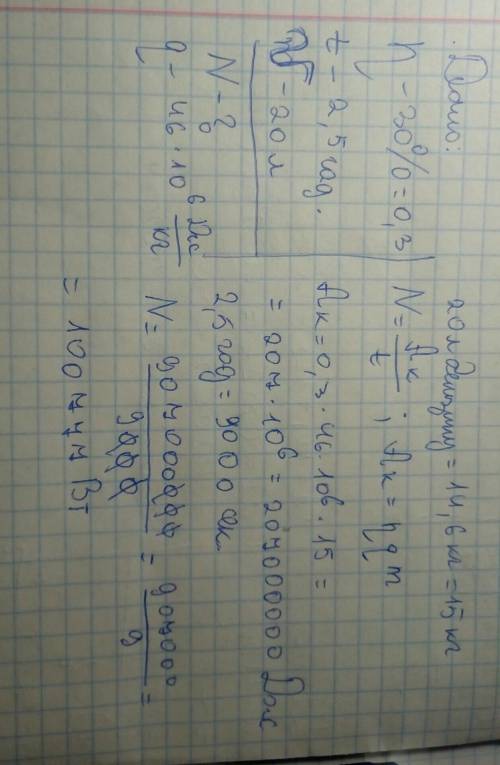 Дано:
η - 30% = 0,3
t - 2,5 год.
V - 20 л
N - ?
q - 46·10⁶ Дж/кг
20л бензину = 14,6 кг = 15 кг
N = Aк/t ; Aк = ηqm
Aк = 0,3·46·10⁶·15 =
= 207·10⁶ = 207000000 Дж
2,5 год = 9000 сек.
N = 907000000/9000 = 907000/9 =
= 100777 Вт